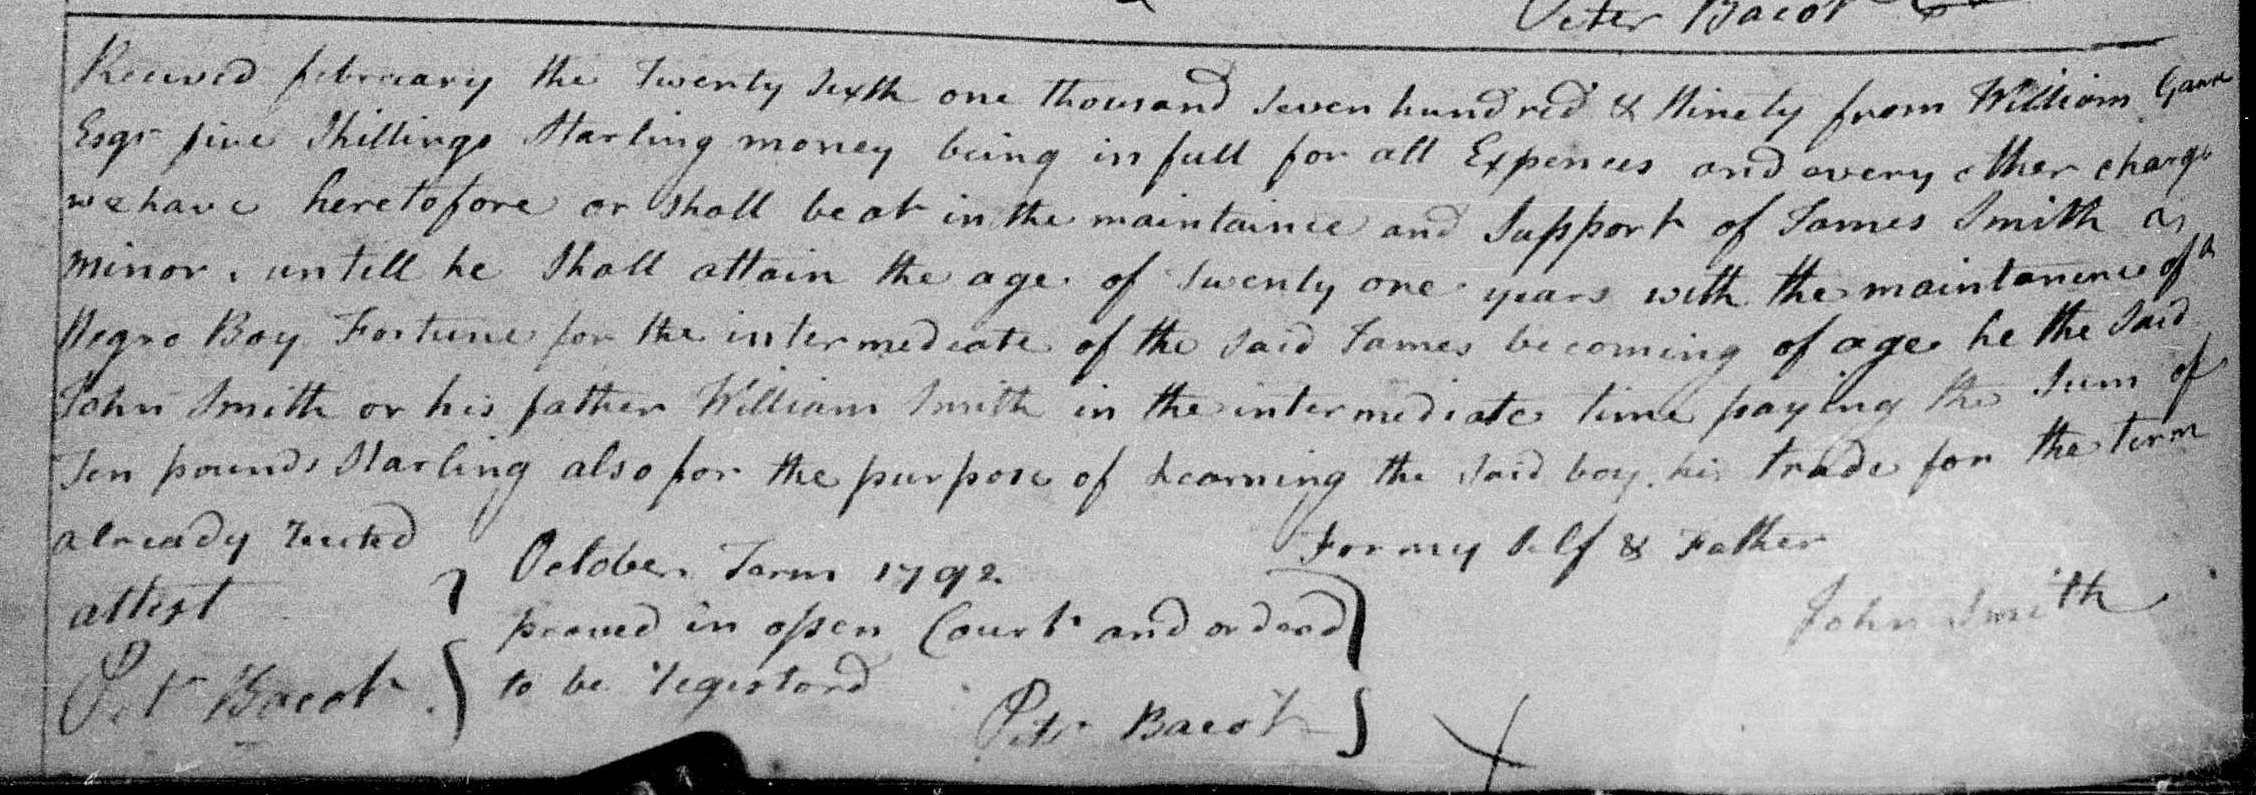 Peter Bacot
Received february the Twenty Sixth one thousand Seven hundred & Ninety from William
Esqr five Shillings Starling money being in full for all Expences and avery other charge
we have heretofore or shall be at in the maintaince and Support of James Smith a
minor. untill he Shall attain the age of Twenty one years with the maintanence of th
Negro Boy Fortune for the intermediate of the said James becoming of age he the Said
John Smith or his father William Smith in the intermediate time paying the Sum of
Ten pounds Starling also for the purpose of Learning the said boy his trade for the term
already recited For my Self & Father
attest October Term 1792 John Smith
proved in open Court and orderd
Petr Bacot to be registord
Petr Bacot